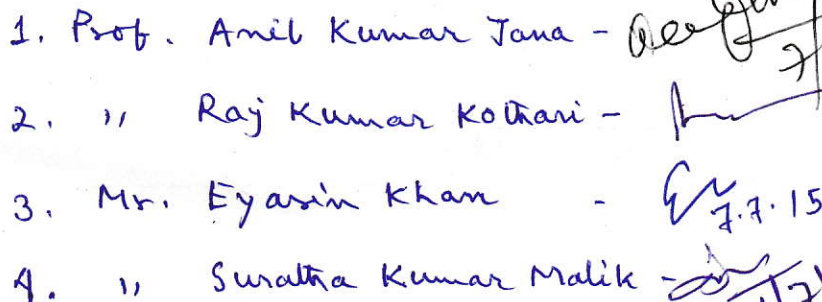 1. Prof. Anil Kumar Jana -
2. " Raj Kumar Kothari -
3. Mr. Eyasin Khan - 7.7.15
4. " Suratha Kumar Malik -